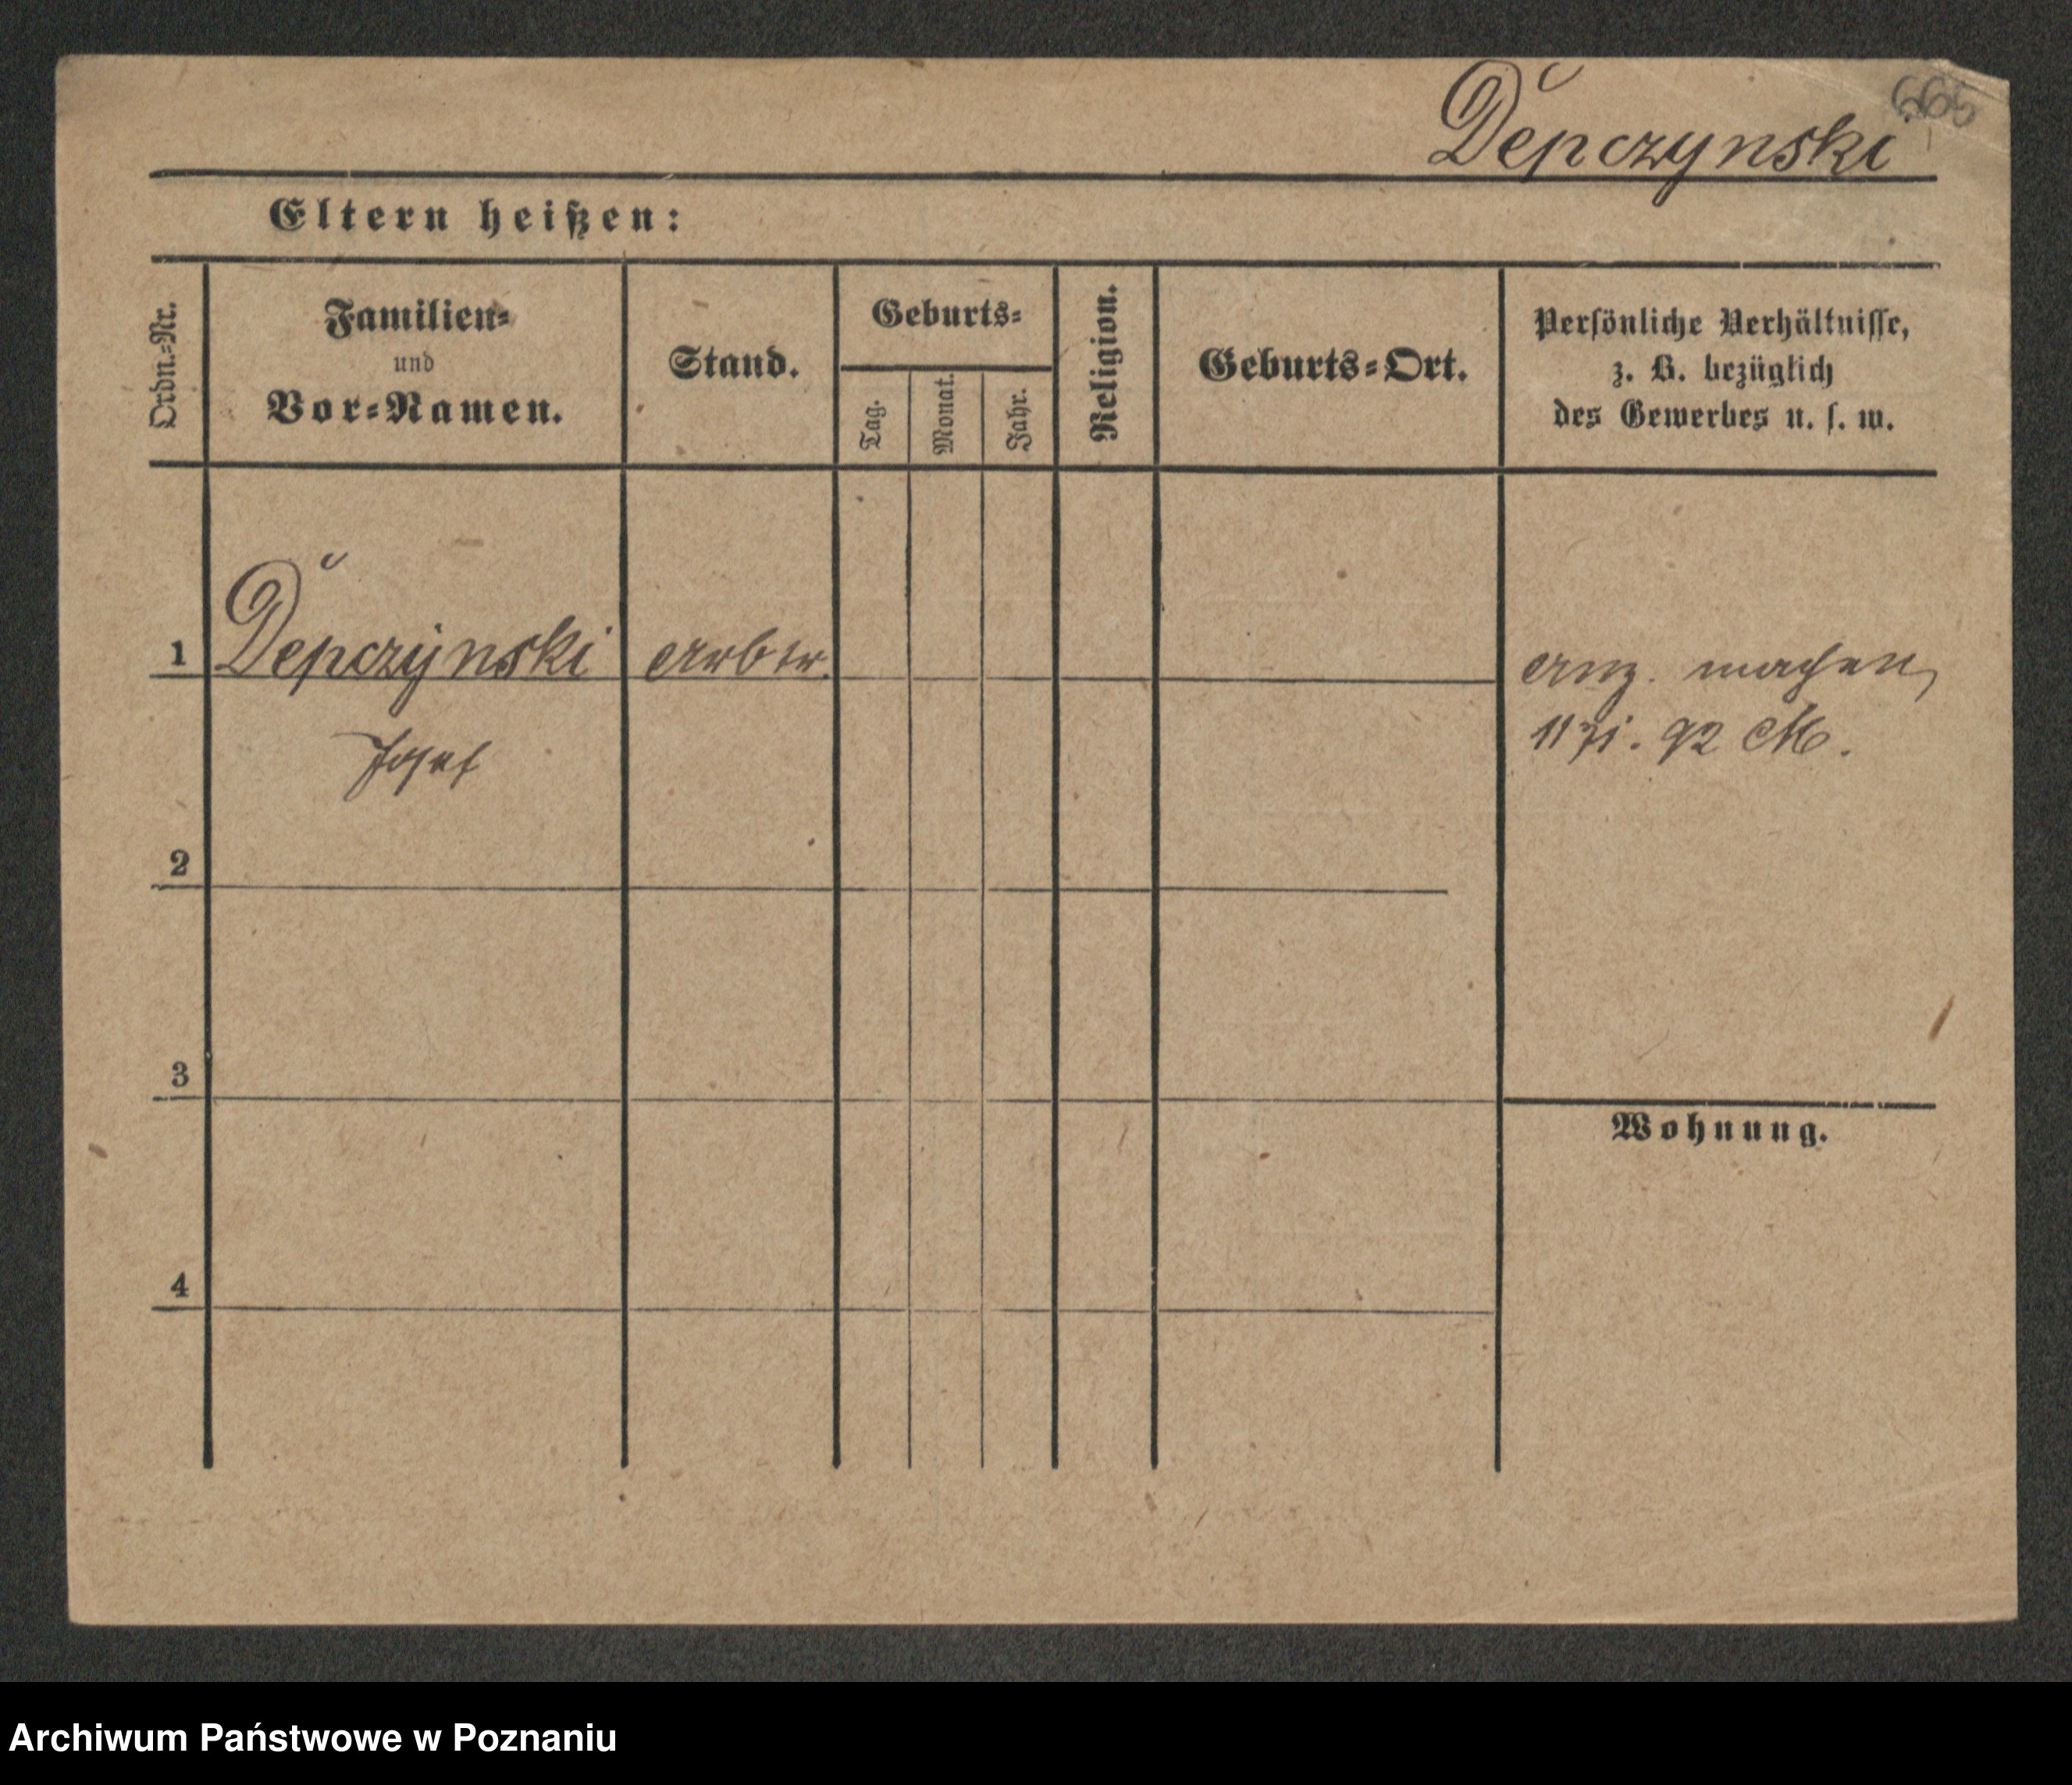 665
Depczynski
Eltern heißen:
Ordn.-Nr.
Familien-
und
Vor-Namen.
Stand.
Geburts-
Tag.
Monat.
Jahr.
Religion.
Geburts-Ort.
Persönliche Verhältnisse,
z. B. bezüglich
des Gewerbes u. s. w.
1 Depczynski Arbtr. Anz. machen,
Josef 92 M.
2
3
Wohnung.
4
Archiwum Państwowe w Poznaniu